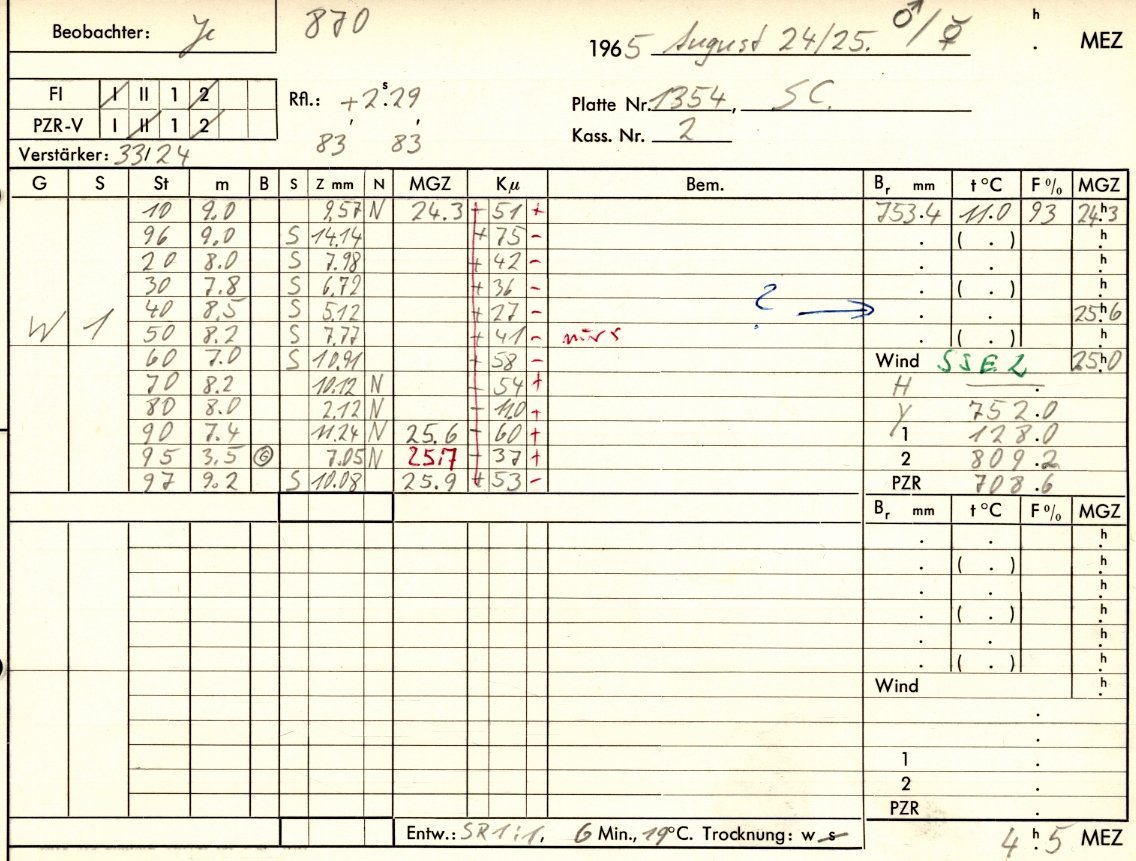 Beobachter: Je 870 1965 August 24/25. ♂/☿ h . MEZ
FI I II 1 2 Rfl.: +2.s29 Platte Nr. 1354, SC.
PZR-V I II 1 2 83' 83' Kass. Nr. 2
Verstärker: 33/24
G S St m B S Z mm N MGZ Kμ Bem. Br mm t °C F % MGZ
10 9.0 9,57 N 24.3 + 51 + 753.4 11.0 93 24.h3
96 9.0 S 14.14 + 75 - . ( . ) h.
20 8.0 S 7.98 + 42 - . . h.
30 7.8 S 6,72 + 36 - . ( . ) h.
40 8,5 S 5.12 + 27 - ? → . . 25.h6
W 1 50 8.2 S 7,77 + 41 - . ( . ) h.
60 7.0 S 10,91 + 58 - Wind SSE 2 25.h0
70 8.2 10.12 N - 54 + H .
80 8.0 2.12 N - 11.0 + Y 752.0
90 7.4 11.24 N 25.6 - 60 + 1 128.0
95 3.5 G 7.05 N 25.7 - 37 + 2 809.2
97 9.2 S 10.08 25.9 + 53 - PZR 708.6
Br mm t °C F % MGZ
. . h.
. ( . ) h.
. . h.
. ( . ) h.
. . h.
. ( . ) h.
Wind h.
.
.
1 .
2 .
PZR .
Entw.: SR 1:1, 6 Min., 19°C. Trocknung: w s 4.h5 MEZ